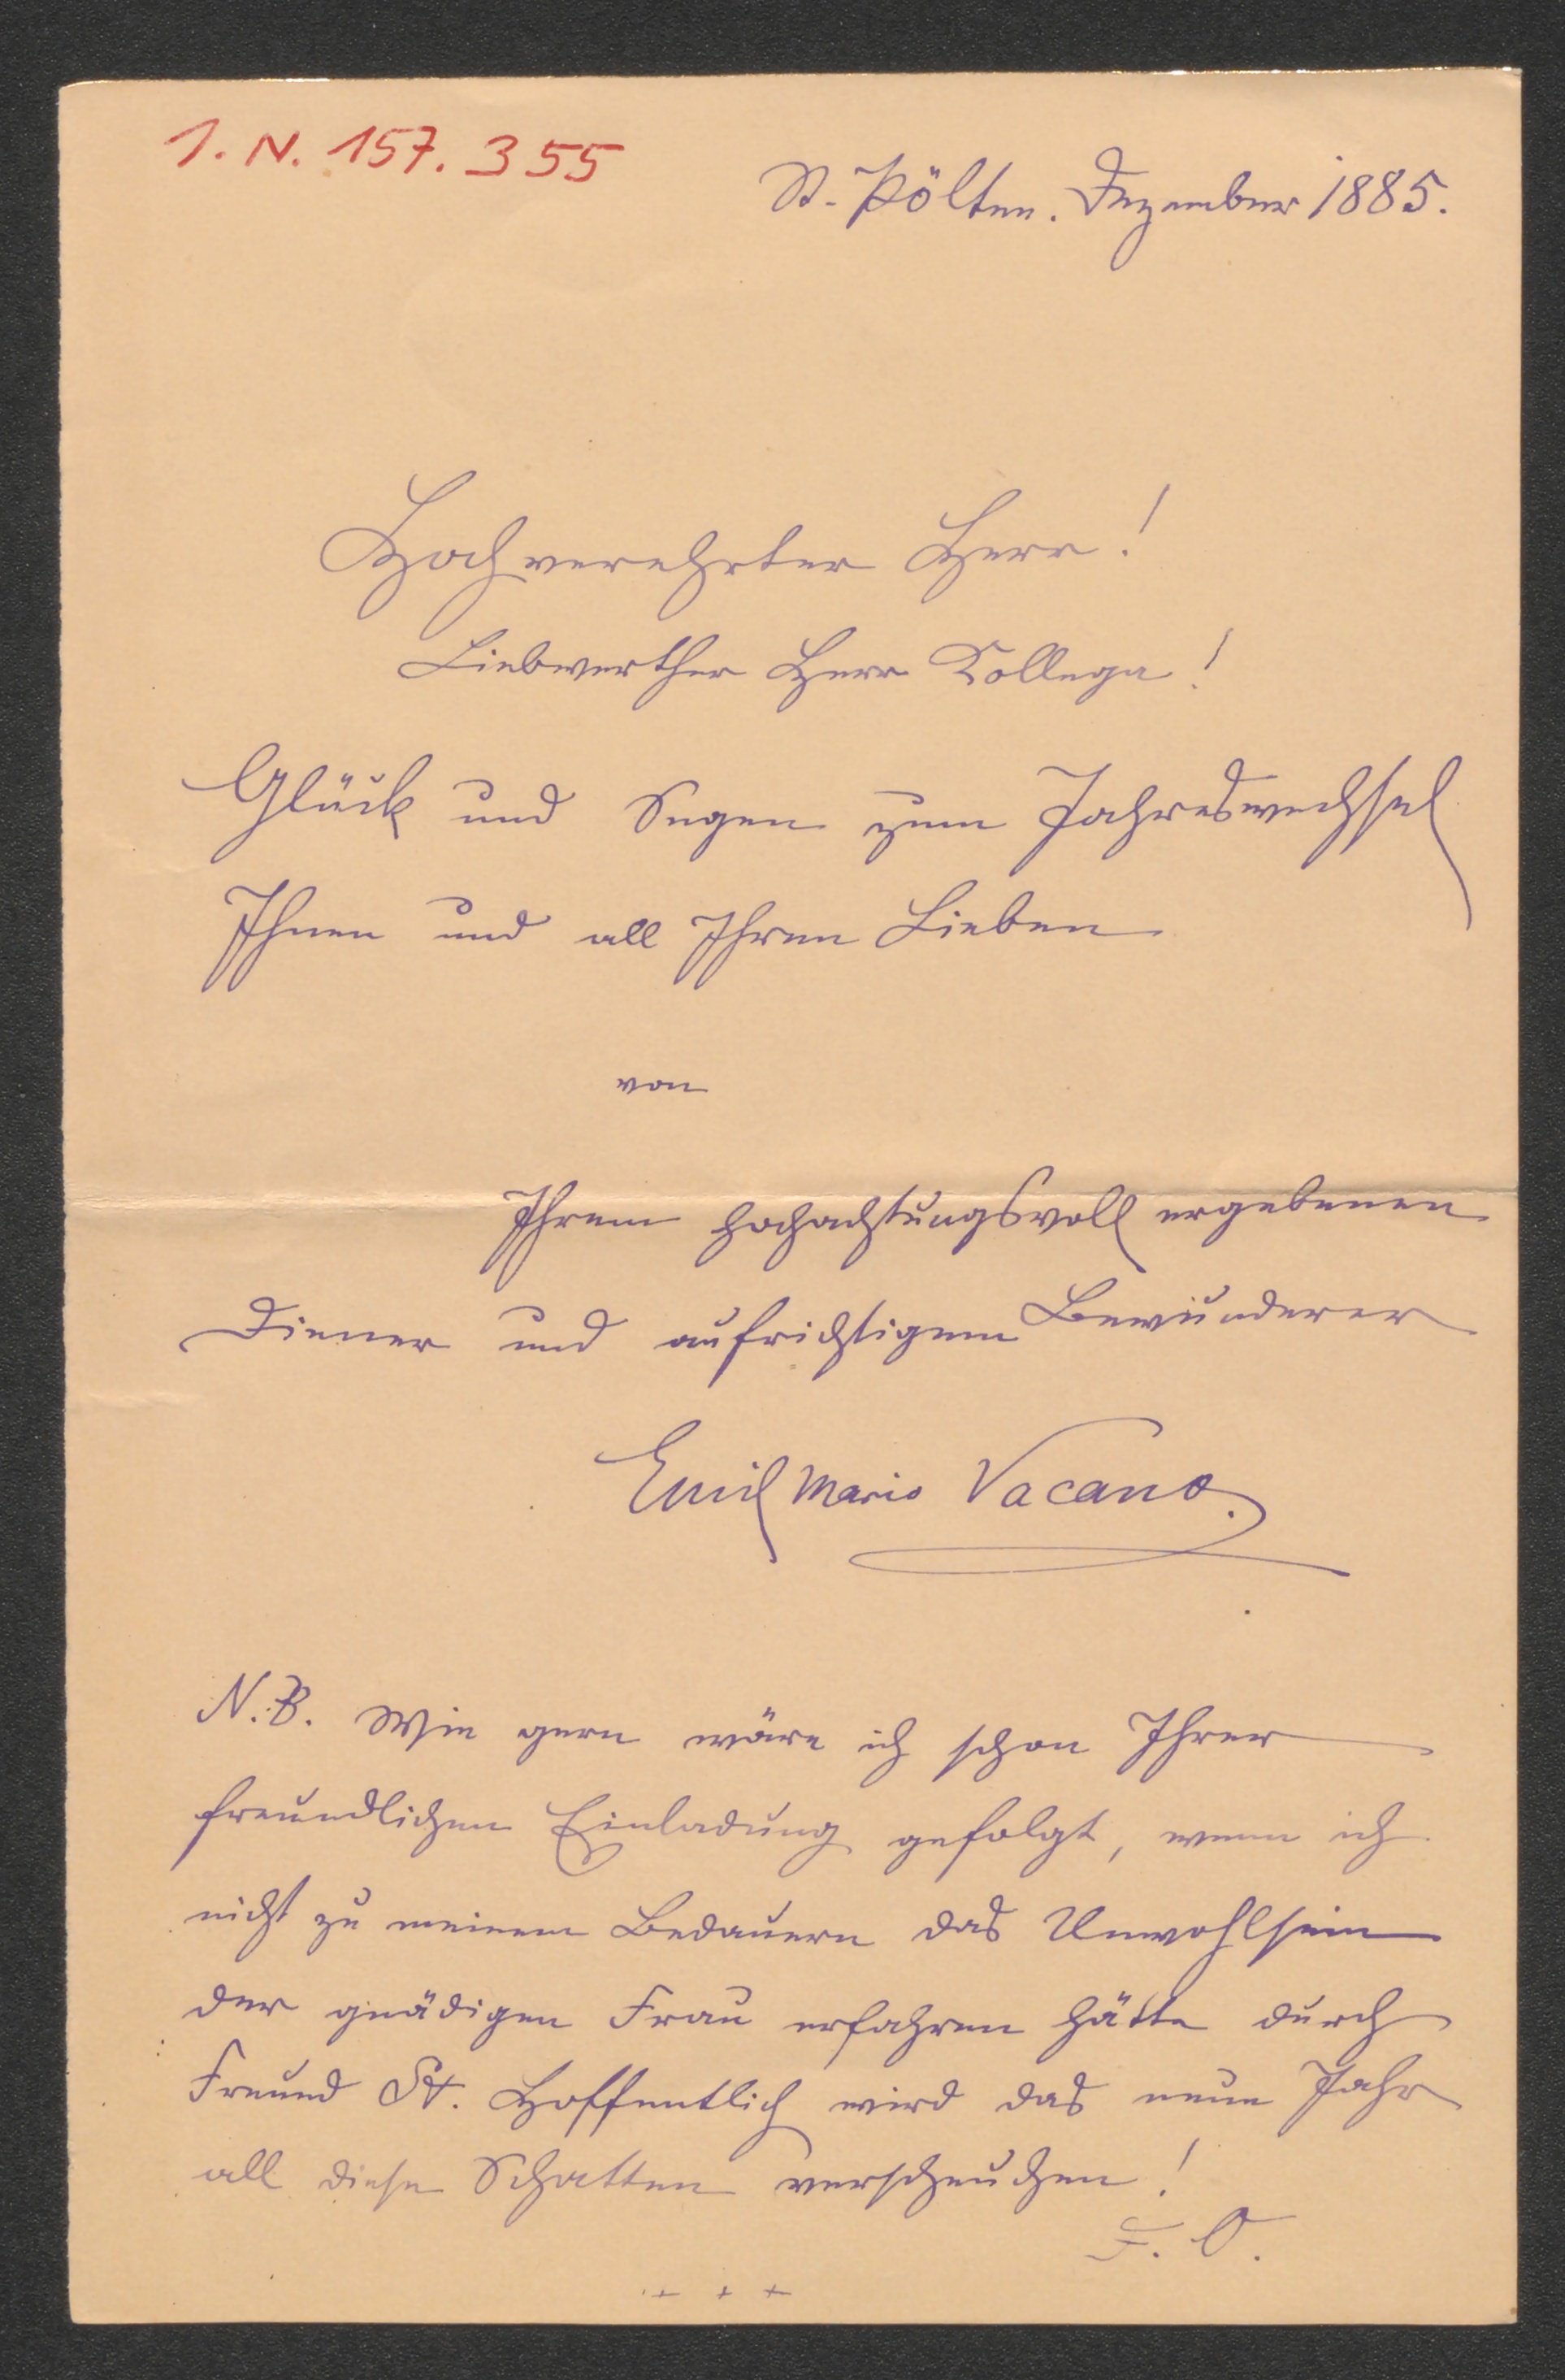 I. N. 157.355
St. Pölten. Dezember 1885.
Hochverehrter Herr!
Liebwerther Herr Kollega!
Glück und Segen zum Jahreswechsel
Ihnen und all Ihren Lieben
von
Ihrem hochachtungsvoll ergebenen
Diener und aufrichtigem Bewunderer
Emil Mario Vacano.
N.B. Wie gern wäre ich schon Ihrer
freundlichen Einladung gefolgt, wenn ich
nicht zu meinem Bedauern das Unwohlsein
der gnädigen Frau erfahren hätte durch
Freund St. Hoffentlich wird das neue Jahr
all diese Schatten verscheuchen!
+ + +